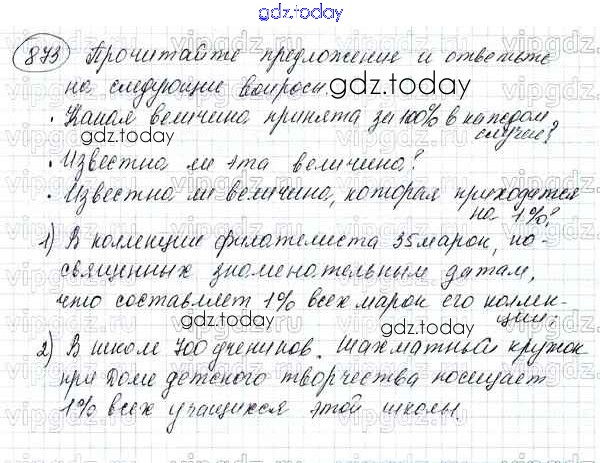 gdz.today
873 Прочитайте предложение и ответьте
на следующие вопросы.
gdz.today
• Какая величина принята за 100% в каждом
случае?
gdz.today
• Известна ли эта величина?
• Известна ли величина, которая приходится
на 1%?
gdz.today
1) В коллекции филателиста 35 марок, по-
священных знаменательным датам,
что составляет 1% всех марок его коллек-
ции.
gdz.today
2) В школе 700 учеников. Шахматный кружок
при Доме детского творчества посещает
gdz.today
1% всех учащихся этой школы.